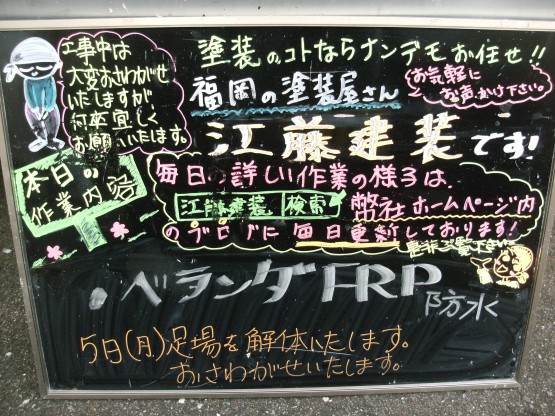 工事中は
大変おさわがせ
いたしますが
何卒宜しく
お願いいたします。
塗装のコトならナンデモお任せ!!
福岡の塗装屋さん
お気軽に
お声かけ下さい。
江藤建装です!
本日の
作業内容
毎日の詳しい作業の様子は、
江藤建装 検索 弊社ホームページ内
のブログに毎日更新しております!
是非ご覧下さい
・ベランダFRP
防水
5日(月)足場を解体いたします。
おさわがせいたします。